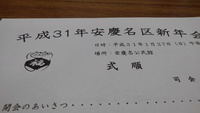 平成31年安慶名区新年会
日時：平成31年1月27日（日）午後
場所：安慶名公民館
式順
司会
開会のあいさつ